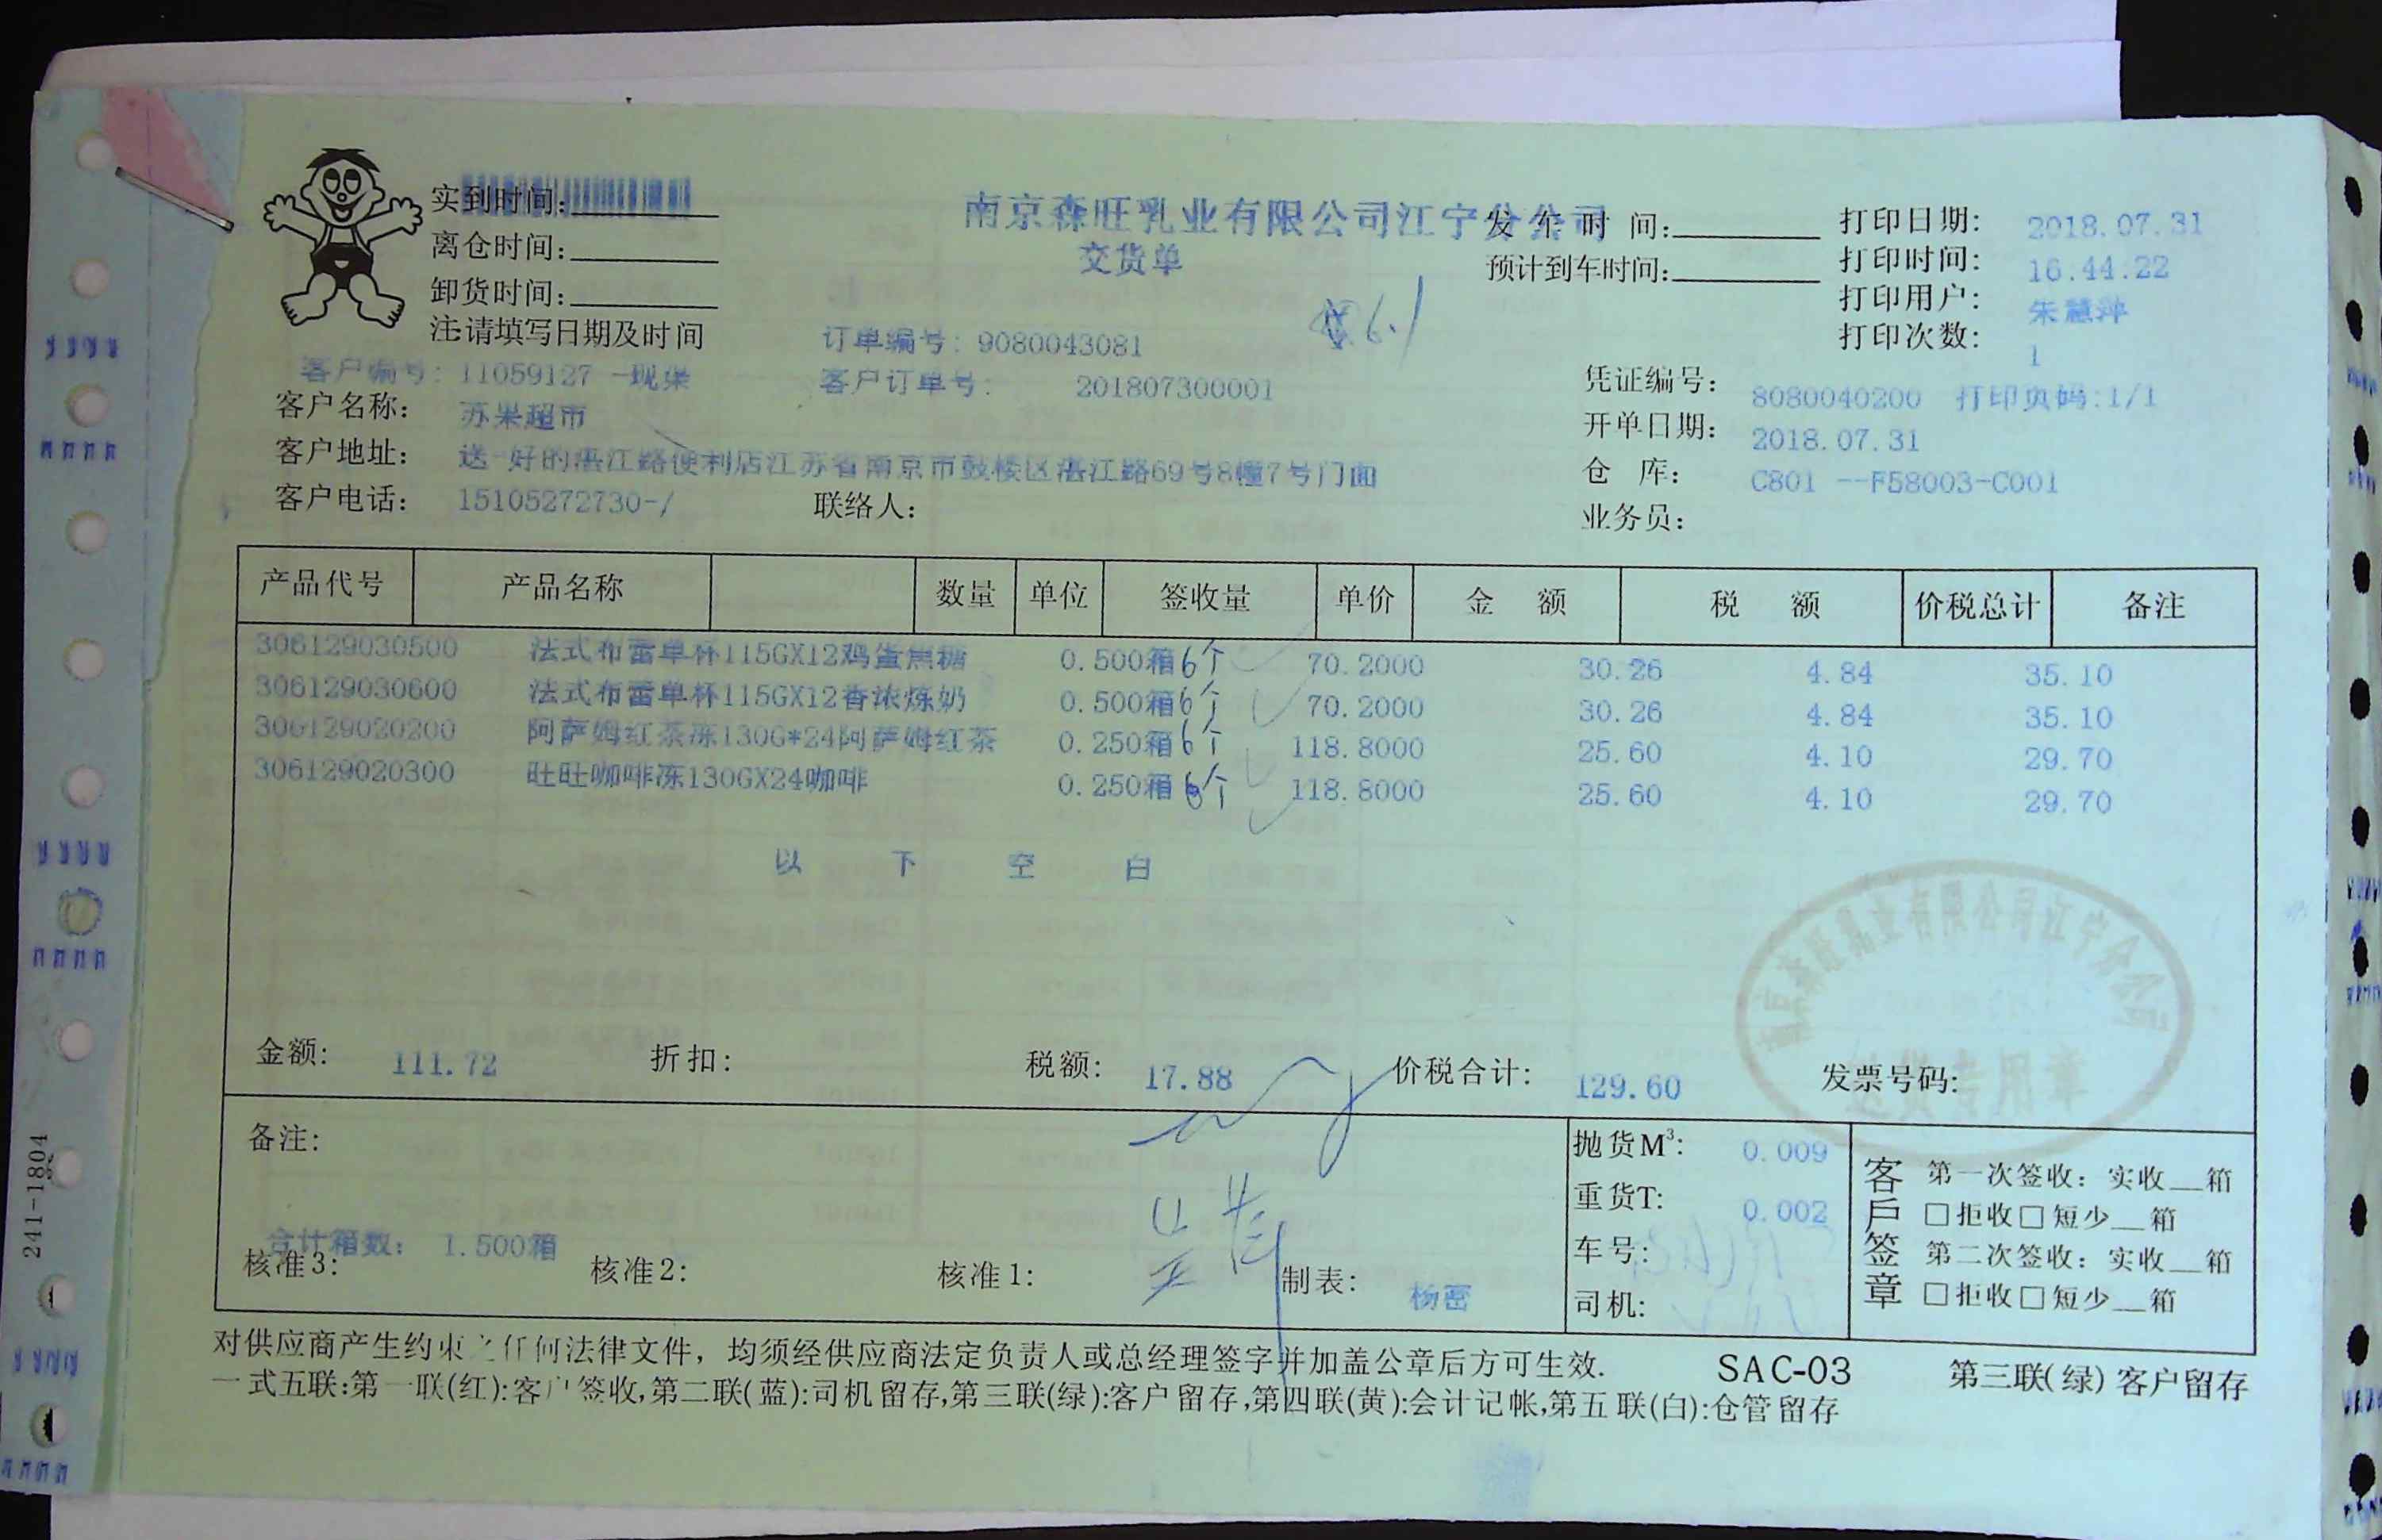 实到时间:
南京森旺乳业有限公司江宁分公司
发车时间:
打印日期: 2018.07.31
离仓时间:
交货单
预计到车时间:
打印时间: 16.44.22
卸货时间:
打印用户: 朱慧萍
注:请填写日期及时间
订单编号: 9080043081
打印次数: 1
客户编号: 11059127 -现渠
客户订单号: 201807300001
凭证编号: 8080040200 打印页码:1/1
客户名称: 苏果超市
开单日期: 2018.07.31
客户地址: 送-好的湛江路便利店江苏省南京市鼓楼区湛江路69号8幢7号门面
仓 库: C801 --F58003-C001
客户电话: 15105272730-/ 联络人:
业务员:
产品代号 产品名称 数量 单位 签收量 单价 金 额 税 额 价税总计 备注
306129030500 法式布蕾单杯115GX12鸡蛋焦糖 0.500箱 6个 70.2000 30.26 4.84 35.10
306129030600 法式布蕾单杯115GX12香浓炼奶 0.500箱 6个 70.2000 30.26 4.84 35.10
306129020200 阿萨姆红茶冻130G*24阿萨姆红茶 0.250箱 6个 118.8000 25.60 4.10 29.70
306129020300 旺旺咖啡冻130GX24咖啡 0.250箱 6个 118.8000 25.60 4.10 29.70
以 下 空 白
金额: 111.72 折扣: 税额: 17.88 价税合计: 129.60 发票号码:
备注:
抛货M³: 0.009
重货T: 0.002
车号:
司机:
客戶签章
第一次签收: 实收__箱
□拒收□短少__箱
第二次签收: 实收__箱
□拒收□短少__箱
合计箱数: 1.500箱
核准3: 核准2: 核准1: 制表: 杨密
对供应商产生约束之任何法律文件，均须经供应商法定负责人或总经理签字并加盖公章后方可生效. SAC-03 第三联(绿)客户留存
一式五联:第一联(红):客户签收,第二联(蓝):司机留存,第三联(绿):客户留存,第四联(黄):会计记帐,第五联(白):仓管留存
241-1804